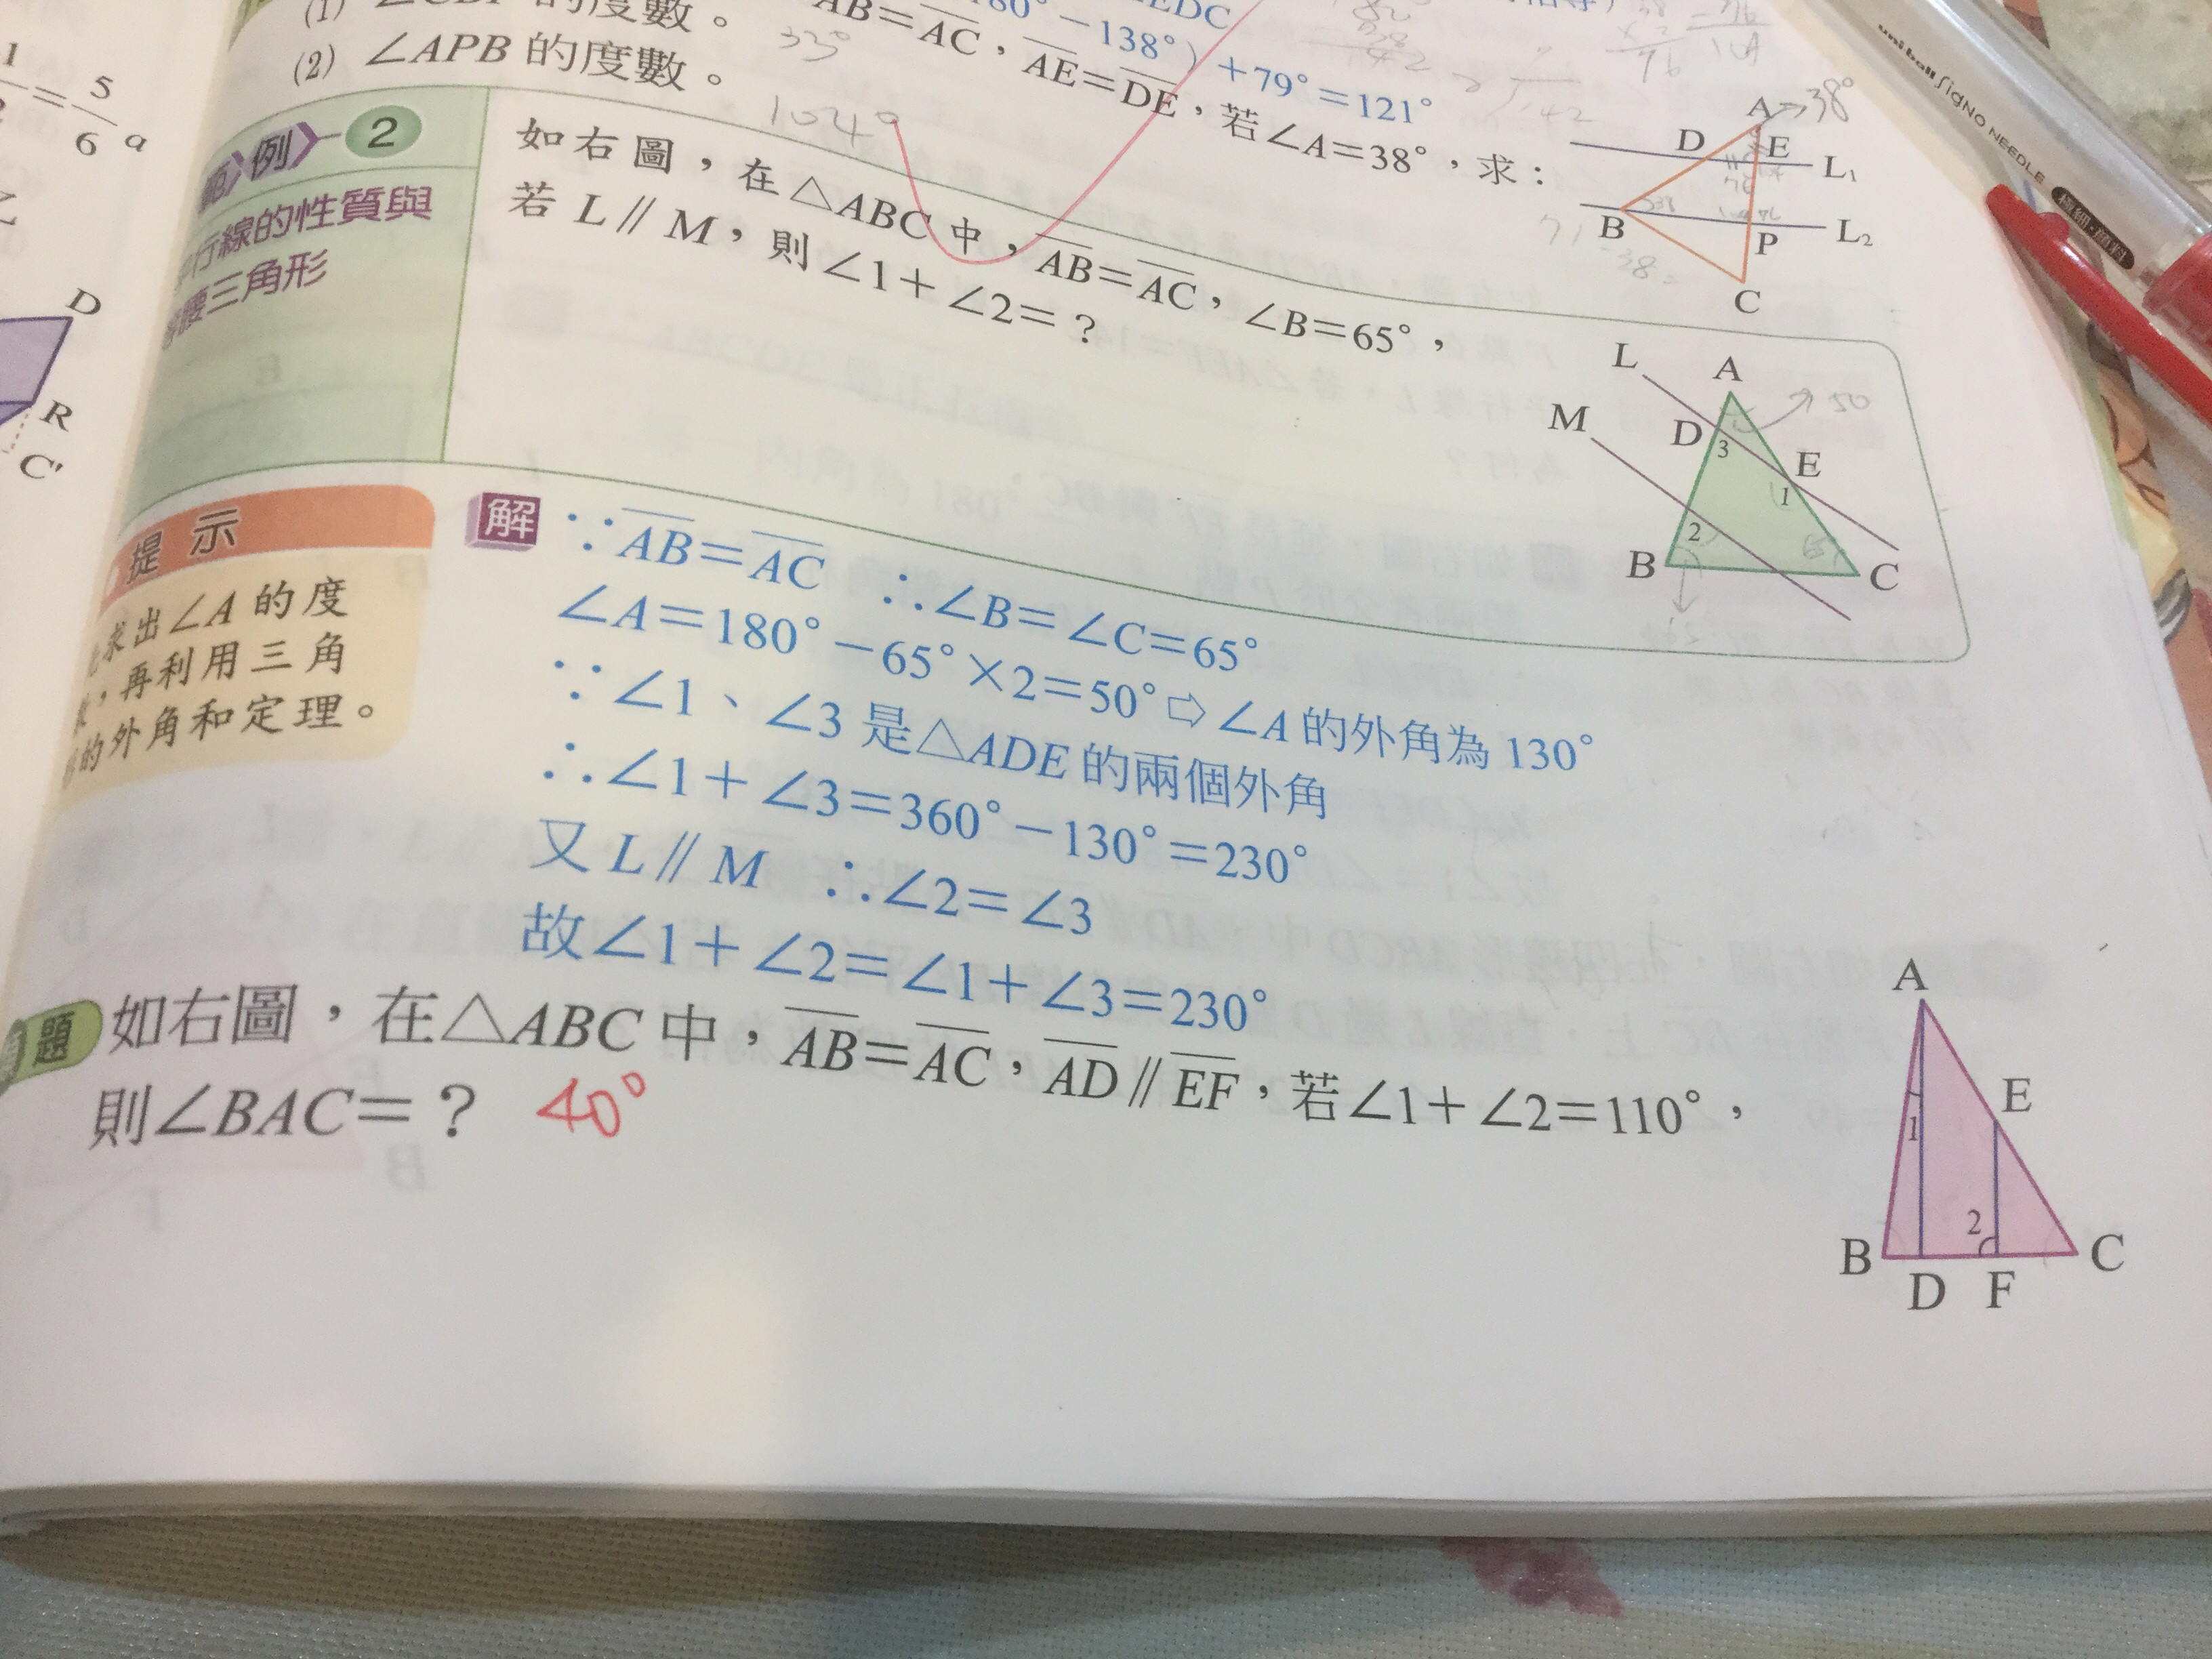 的度數。 33°
(2) ∠APB 的度數。 104°
AB=AC，AE=DE，若∠A=38°，求：
EDC
180°－138°）＋79°＝121°
A→38°
D E L₁
B P L₂
C
5
6 a
D
R
C'
範例 2
行線的性質與
腰三角形
如右圖，在△ABC 中，AB=AC，∠B=65°，
若 L∥M，則∠1＋∠2＝？
L A 50
M D 3 E
1
2
B 65 C
提示
求出∠A 的度
，再利用三角
的外角和定理。
解 ∵AB=AC ∴∠B=∠C=65°
∠A=180°－65°×2=50°⇨∠A 的外角為 130°
∵∠1、∠3 是△ADE 的兩個外角
∴∠1＋∠3=360°－130°=230°
又 L∥M ∴∠2=∠3
故∠1＋∠2=∠1＋∠3=230°
題 如右圖，在△ABC 中，AB=AC，AD∥EF，若∠1＋∠2=110°，
則∠BAC=？ 40°
A
E
1
2
B D F C
uniball SigNO NEEDLE